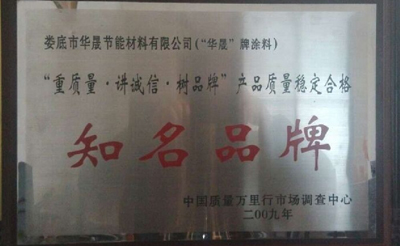 娄底市华晟节能材料有限公司(“华晟”牌涂料)
“重质量·讲诚信·树品牌”产品质量稳定合格
知名品牌
中国质量万里行市场调查中心
二00九年